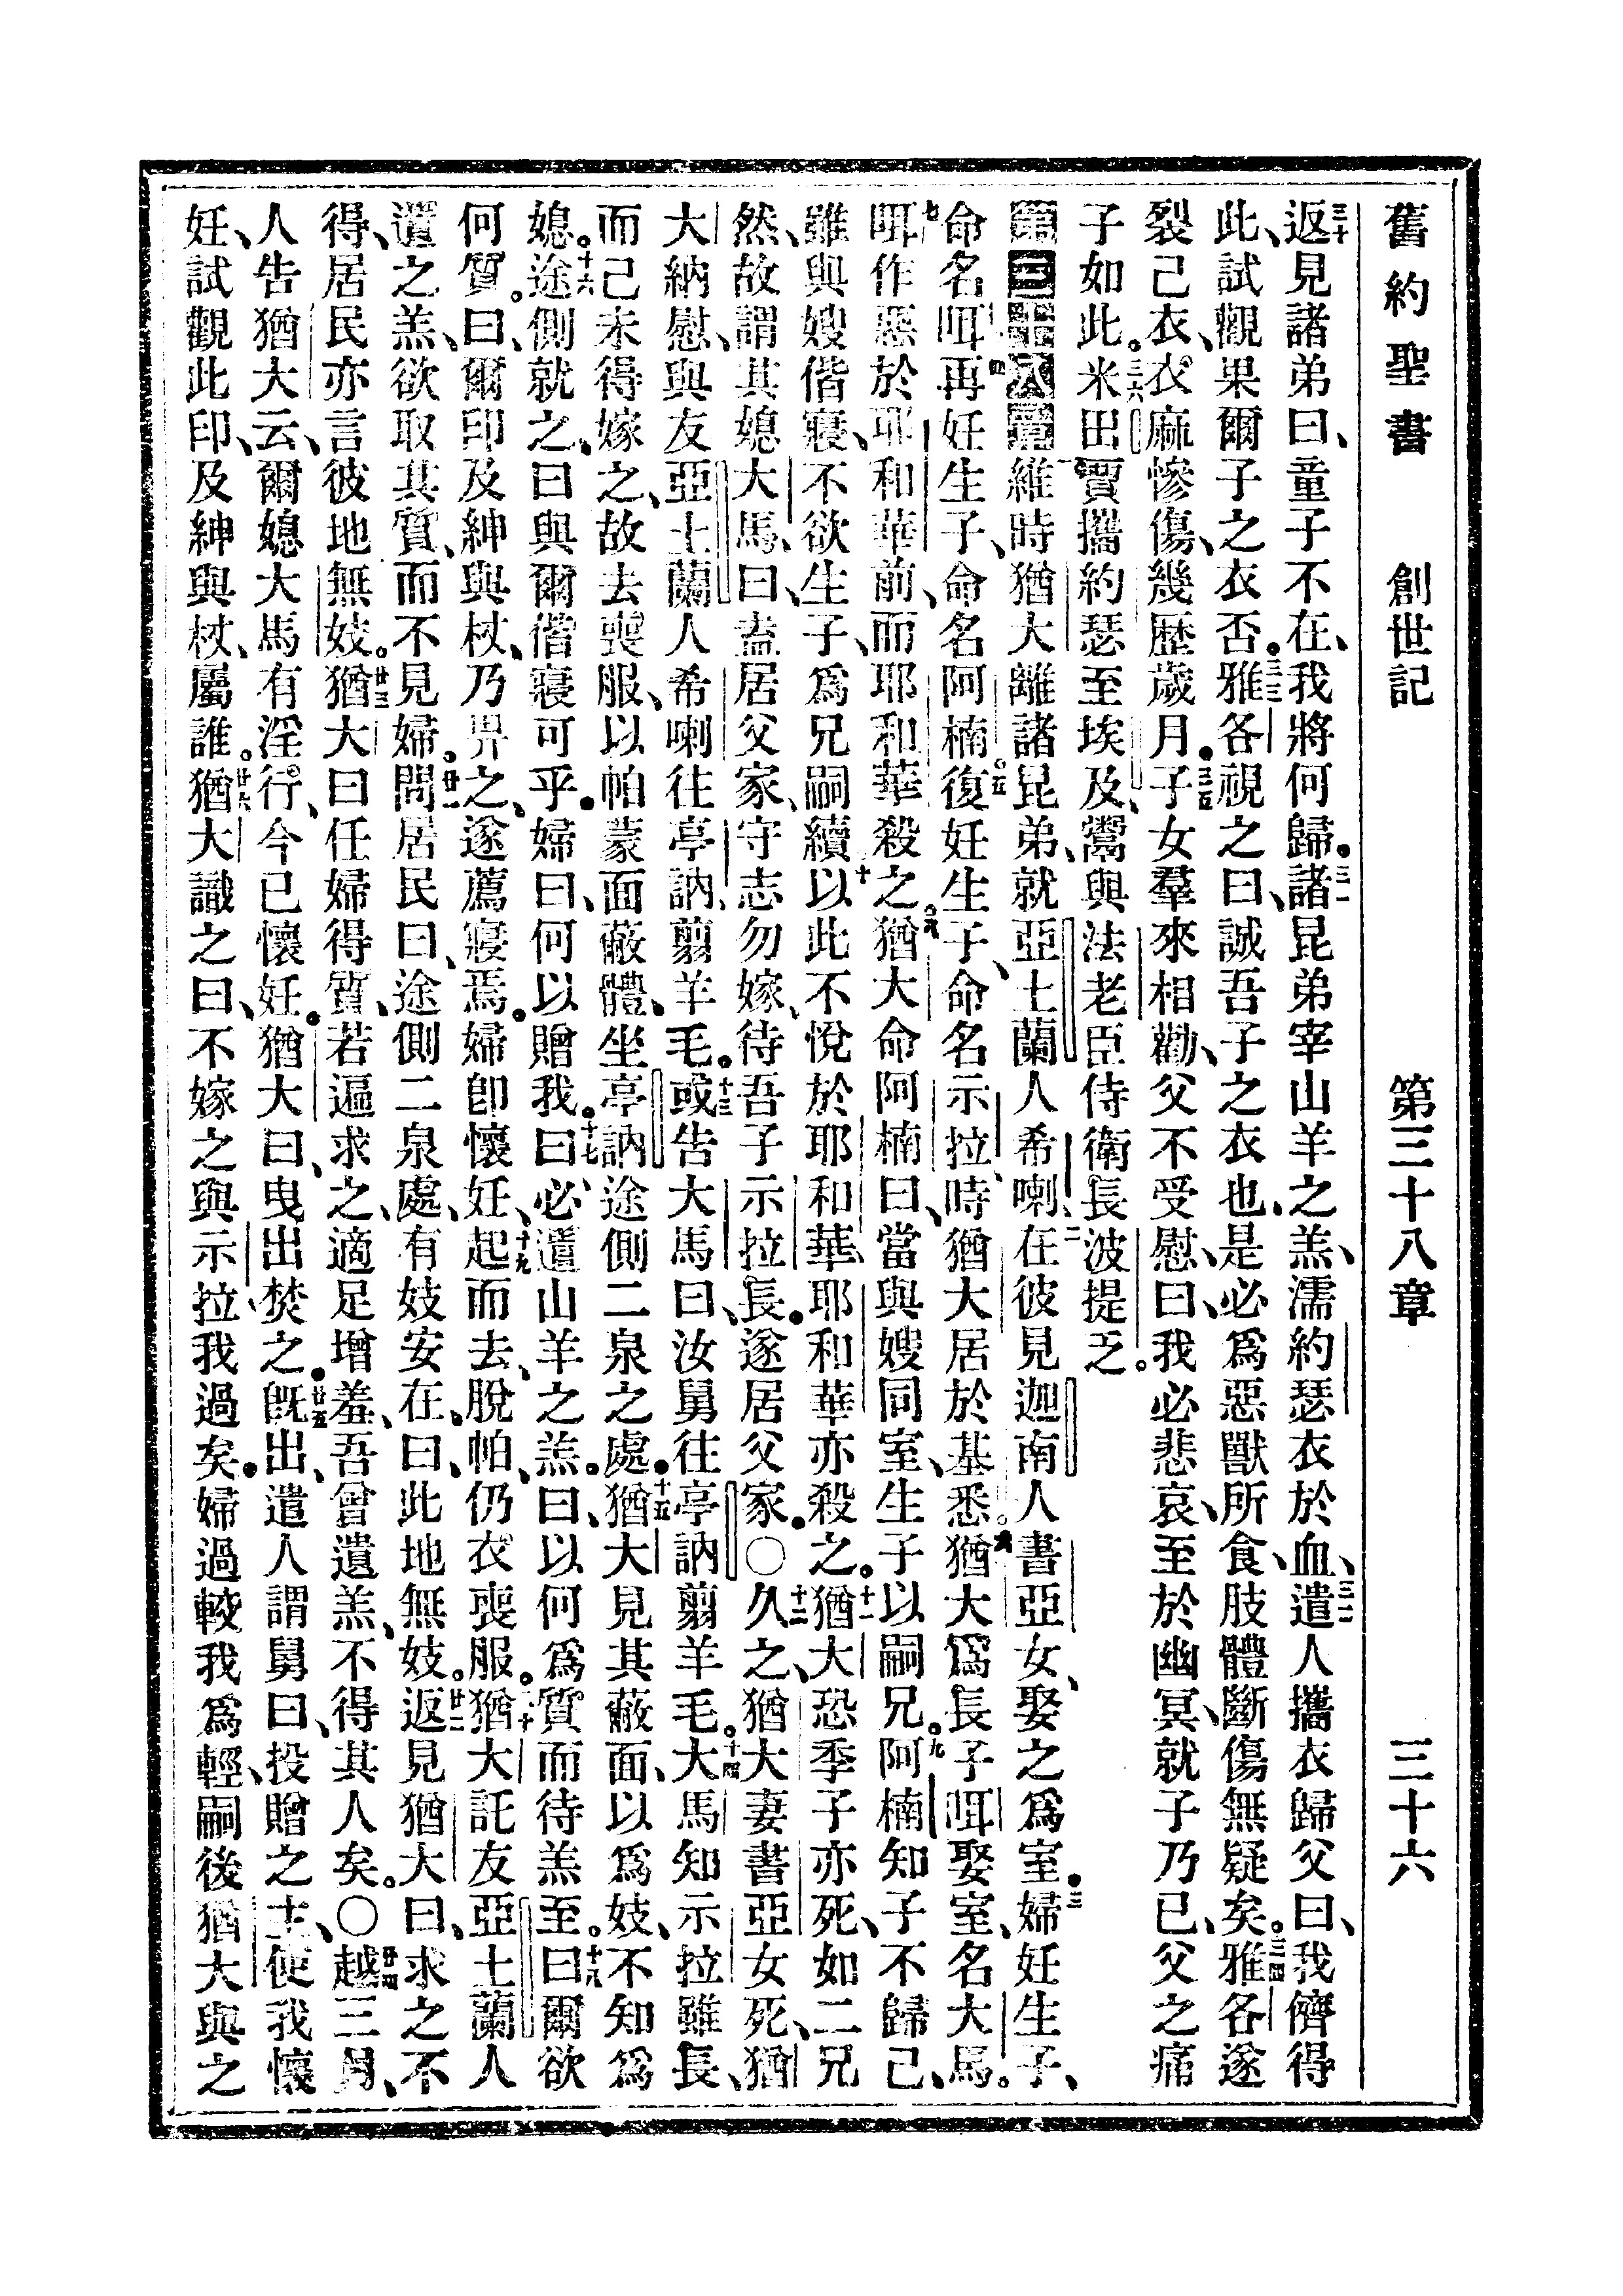 舊約聖書 創世記 第三十八章 三十六
三十返見諸弟曰、童子不在、我將何歸。三一諸昆弟宰山羊之羔、濡約瑟衣於血、三二遣人攜衣歸父曰、我儕得
此、試觀、果爾子之衣否。三三雅各視之曰、誠吾子之衣也、是必爲惡獸所食、肢體斷傷無疑矣。三四雅各遂
裂己衣、衣麻慘傷、幾歷歲月。三五子女羣來相勸、父不受慰、曰、我必悲哀、至於幽冥、就子乃已、父之痛
子如此。三六米田賈攜約瑟至埃及、鬻與法老臣侍衛長波提乏。
第三十八章 一維時猶大離諸昆弟、就亞土蘭人希喇、二在彼見迦南人書亞女、娶之爲室。三婦妊生子、
命名咡。四再妊生子、命名阿楠。五復妊生子、命名示拉、時猶大居於基悉。六猶大爲長子咡娶室、名大馬。
七咡作惡於耶和華前、而耶和華殺之。八猶大命阿楠曰、當與嫂同室、生子以嗣兄。九阿楠知子不歸己、
雖與嫂偕寢、不欲生子、爲兄嗣續、十以此不悅於耶和華、耶和華亦殺之。十一猶大恐季子亦死、如二兄
然、故謂其媳大馬、曰、盍居父家、守志勿嫁、待吾子示拉長。遂居父家。〇十二久之、猶大妻書亞女死、猶
大納慰、與友亞土蘭人希喇往亭訥、翦羊毛。十三或告大馬曰、汝舅往亭訥翦羊毛。十四大馬知示拉雖長、
而己未得嫁之、故去喪服、以帕蒙面蔽體、坐亭訥途側二泉之處。十五猶大見其蔽面、以爲妓、不知爲
媳。十六途側就之、曰、與爾偕寢可乎。婦曰、何以贈我。十七曰、必遣山羊之羔。曰、以何爲質而待羔至。十八曰、爾欲
何質。曰、爾印及紳與杖、乃畀之、遂薦寢焉。婦卽懷妊、十九起而去、脫帕、仍衣喪服。二十猶大託友亞土蘭人
遣之羔、欲取其質、而不見婦。廿一問居民曰、途側二泉處、有妓安在、曰、此地無妓。廿二返見猶大曰、求之不
得、居民亦言彼地無妓。廿三猶大曰、任婦得質、若遍求之、適足增羞、吾曾遣羔、不得其人矣。〇廿四越三月、
人告猶大云、爾媳大馬有淫行、今已懷妊。猶大曰、曳出焚之。廿五旣出、遣人謂舅曰、投贈之主、使我懷
妊、試觀此印、及紳與杖、屬誰。廿六猶大識之曰、不嫁之與示拉、我過矣。婦過較我爲輕、嗣後猶大與之